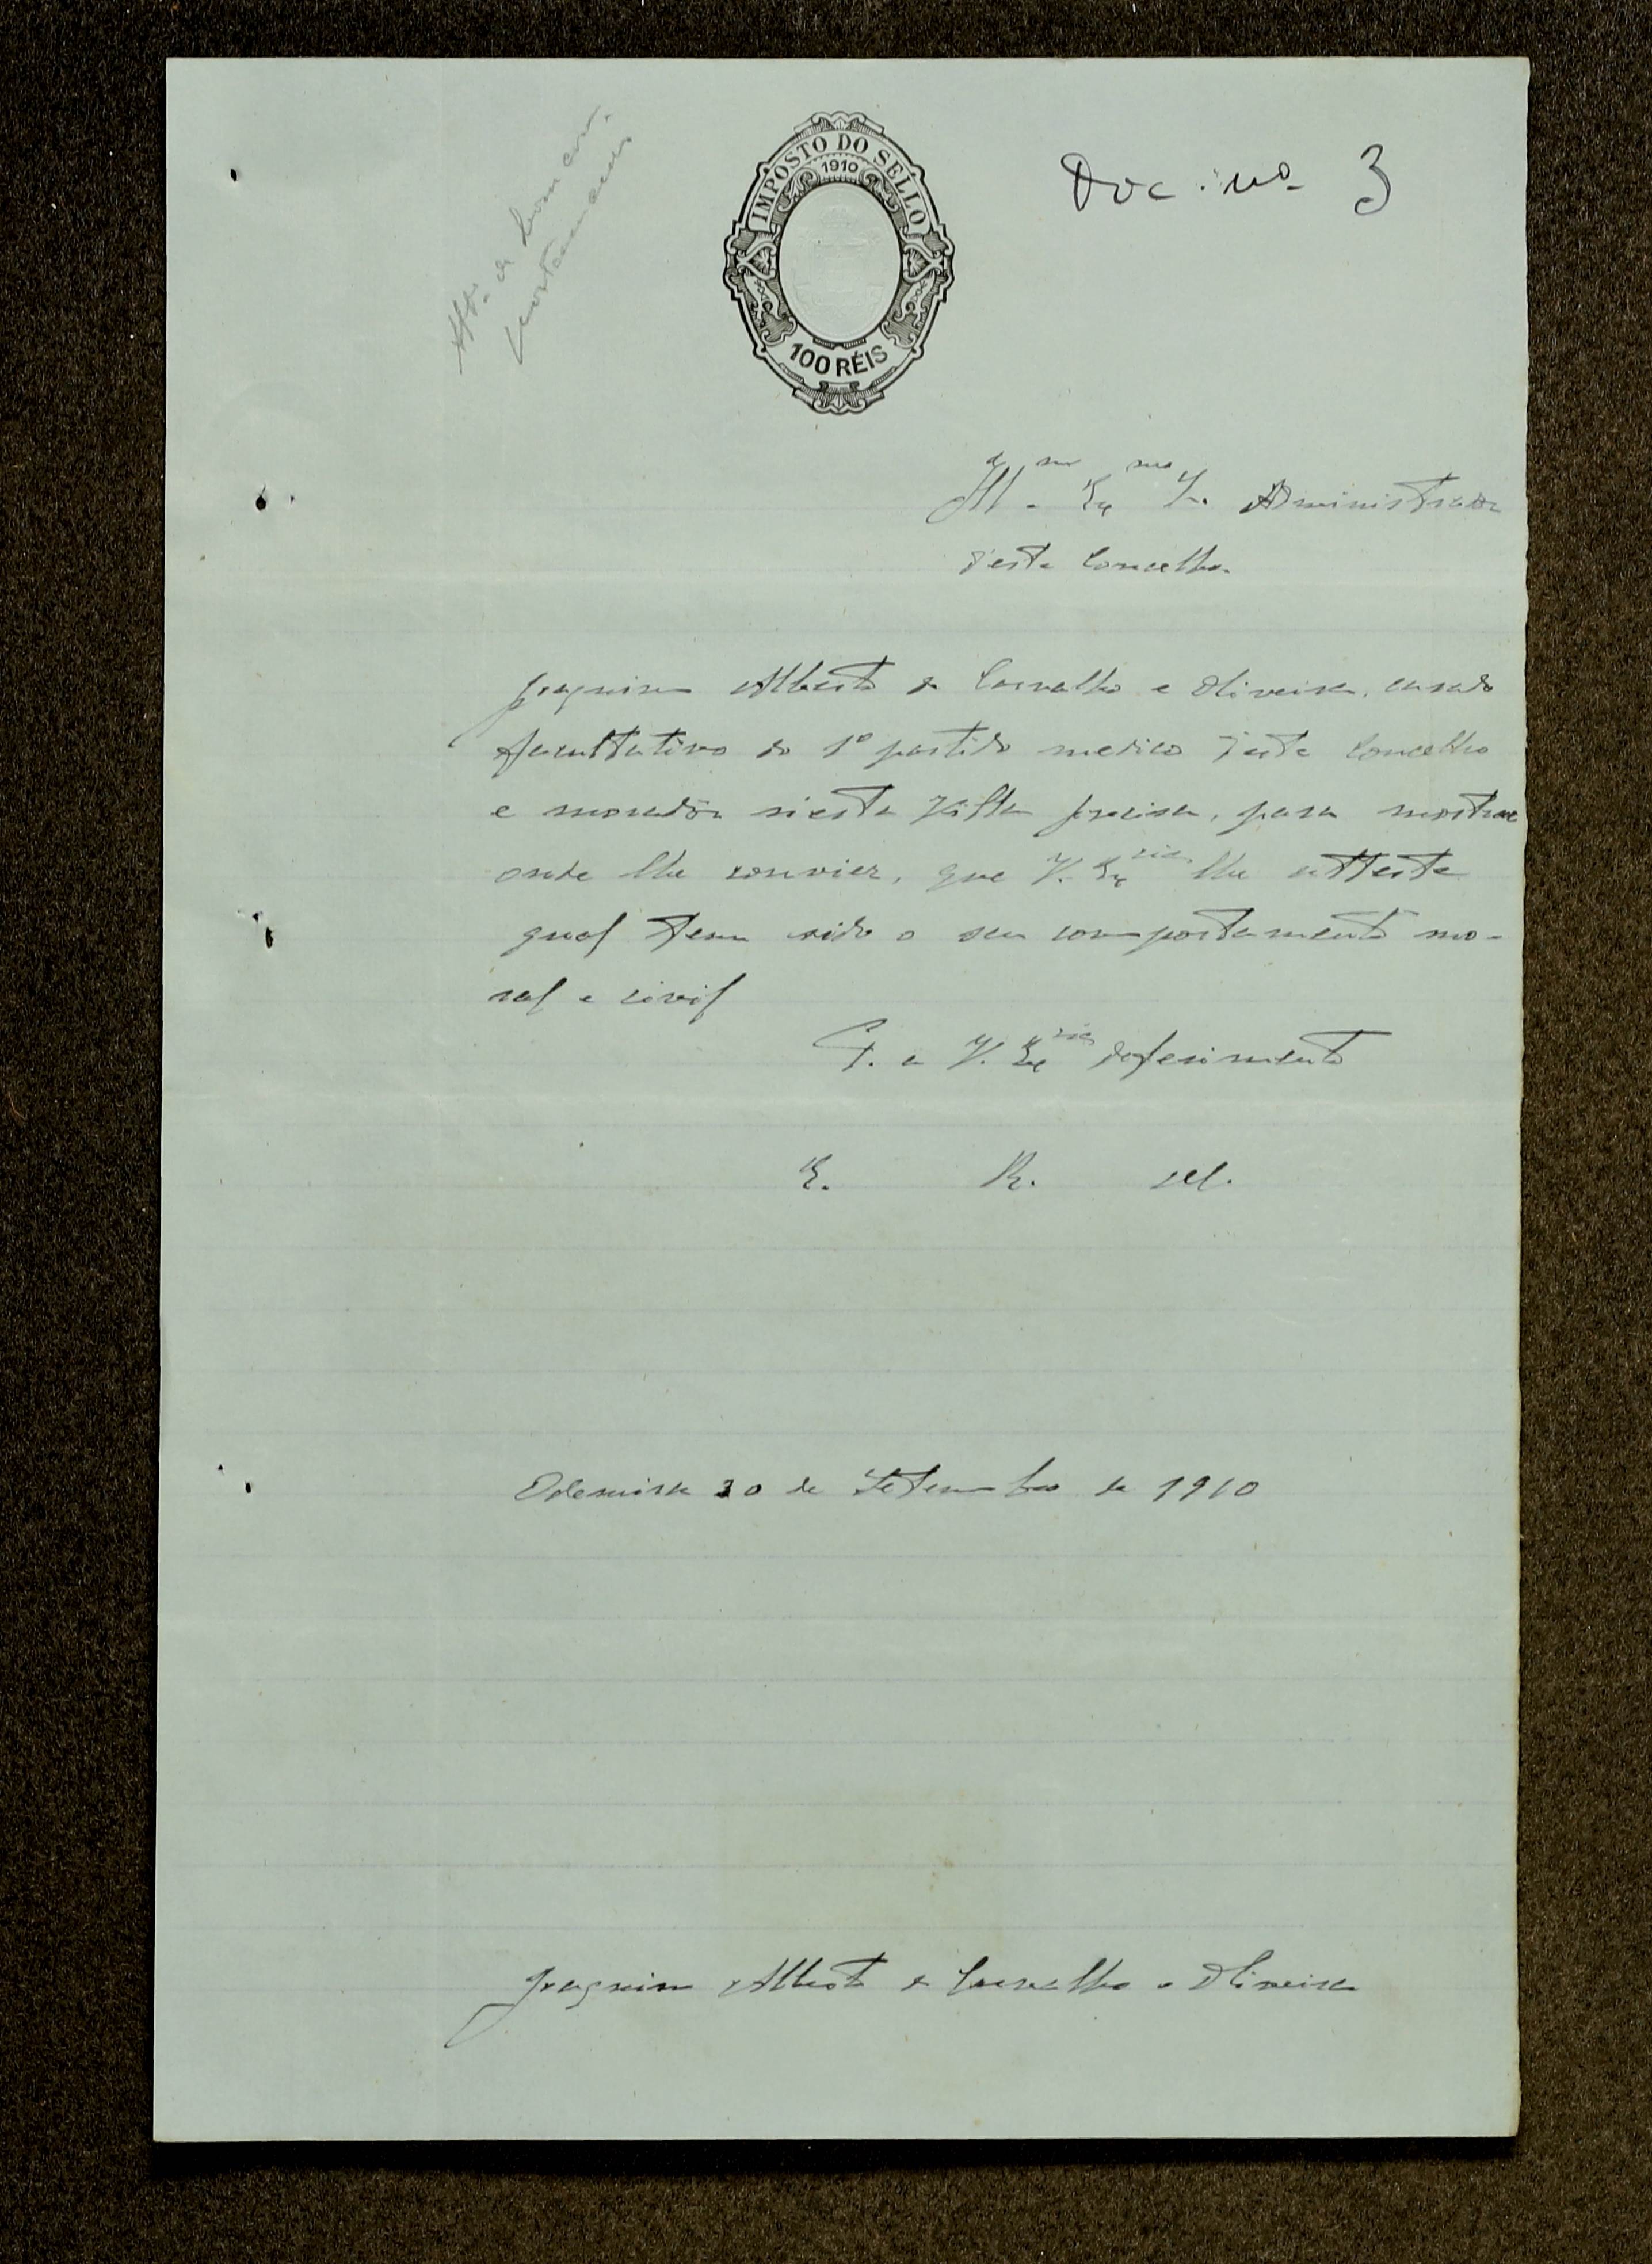 Attº de bom com-
portamento
IMPOSTO DO SELLO
1910
100 RÉIS
Doc. nº 3
Illmo Exmo Sr. Administrador
d'este Concelho.
Joaquim Alberto de Carvalho e Oliveira, casado
facultativo do 1º partido medico d'este Concelho
e morador n'esta Villa precisa, para mostrar
onde lhe convier, que V. Excia lhe atteste
qual tem sido o seu comportamento mo-
ral e civil
P. a V. Excia deferimento
E. R. M.
Odemira 30 de Setembro de 1910
Joaquim Alberto de Carvalho e Oliveira